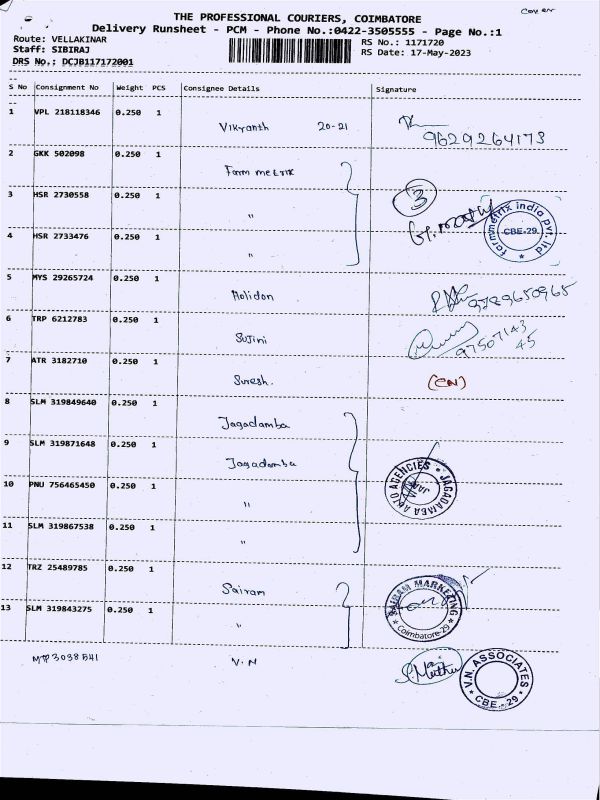 Cover
THE PROFESSIONAL COURIERS, COIMBATORE
Delivery Runsheet - PCM - Phone No.:0422-3505555 - Page No.:1
Route: VELLAKINAR
RS No.: 1171720
Staff: SIBIRAJ
RS Date: 17-May-2023
DRS No.: DCJB117172001
S No Consignment No Weight PCS Consignee Details Signature
1 VPL 218118346 0.250 1 Vikyanth 20-21
9629264173
2 GKK 502098 0.250 1 Form metrix
3 HSR 2730558 0.250 1 "
3
formmetrix india pvt. ltd
CBE-29.
4 HSR 2733476 0.250 1 "
5 MYS 29265724 0.250 1 Molidon
9789650965
6 TRP 6212783 0.250 1 Sujini
97507143
45
7 ATR 3182710 0.250 1 Suresh. (CN)
8 SLM 319849640 0.250 1 Jagadamba
9 SLM 319871648 0.250 1 Jagadamba
JAGADAMBA AUTO AGENCIES
10 PNU 756465450 0.250 1 "
11 SLM 319867538 0.250 1 "
12 TRZ 25489785 0.250 1 Sairam
SAIRAM MARKETING
Coimbatore-29
13 SLM 319843275 0.250 1 "
MTP3038541 V.N
S. Muthu
V.N. ASSOCIATES
CBE - 29